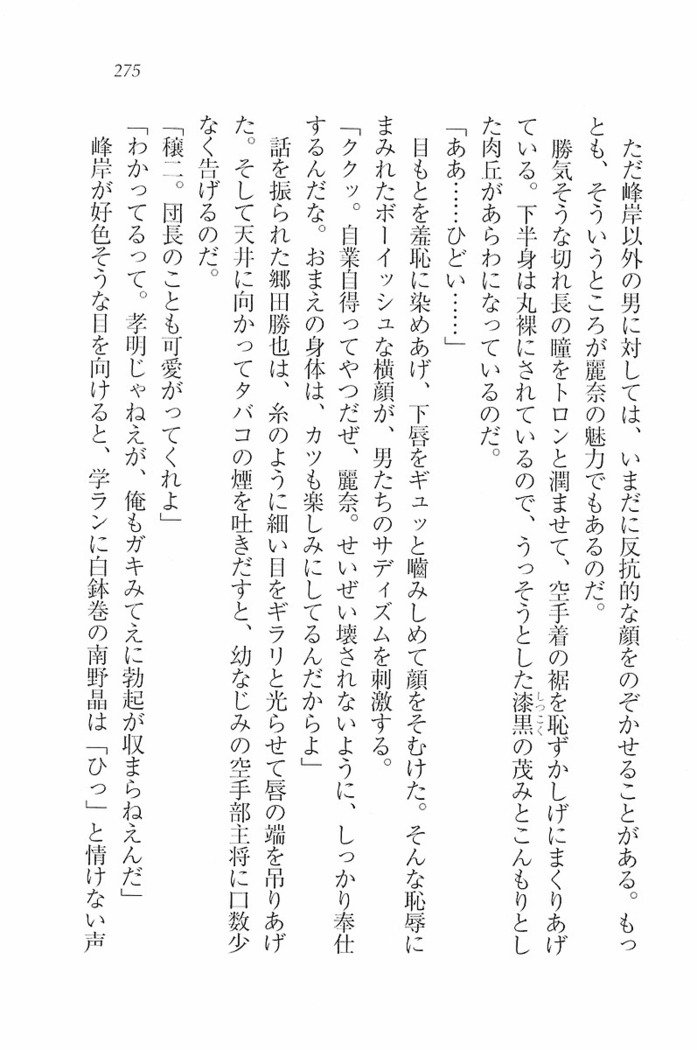 275
ただ峰岸以外の男に対しては、いまだに反抗的な顔をのぞかせることがある。もっ
とも、そういうところが麗奈の魅力でもあるのだ。
勝気そうな切れ長の瞳をトロンと潤ませて、空手着の裾を恥ずかしげにまくりあげ
ている。下半身は丸裸にされているので、うっそうとした漆黒の茂みとこんもりとし
しつこく
た肉丘があらわになっているのだ。
「ああ……ひどい……」
目もとを羞恥に染めあげ、下唇をギュッと嚙みしめて顔をそむけた。そんな恥辱に
まみれたボーイッシュな横顔が、男たちのサディズムを刺激する。
「ククッ。自業自得ってやつだぜ、麗奈。せいぜい壊されないように、しっかり奉仕
するんだな。おまえの身体は、カツも楽しみにしてるんだからよ」
話を振られた郷田勝也は、糸のように細い目をギラリと光らせて唇の端を吊りあげ
た。そして天井に向かってタバコの煙を吐きだすと、幼なじみの空手部主将に口数少
なく告げるのだ。
「穣二。団長のことも可愛がってくれよ」
「わかってるって。孝明じゃねえが、俺もガキみてえに勃起が収まらねえんだ」
峰岸が好色そうな目を向けると、学ランに白鉢巻の南野晶は「ひっ」と情けない声